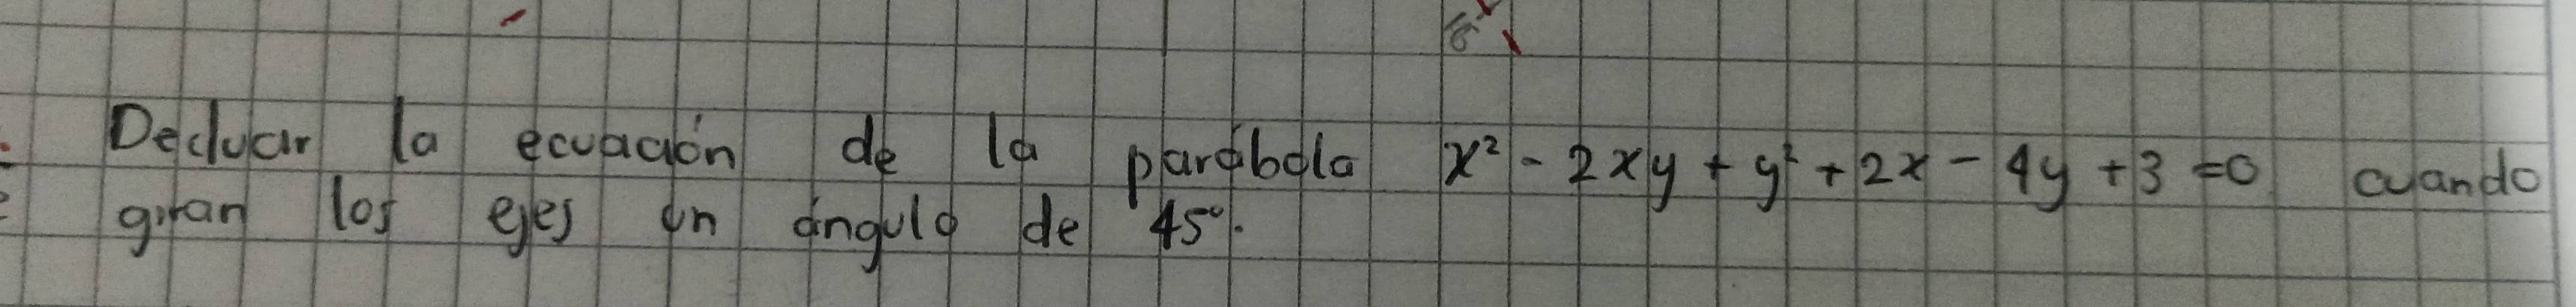 Deducir la ecuación de la parábola x² - 2xy + y² + 2x - 4y + 3 = 0 cuando
giran los ejes un ángulo de 45°.